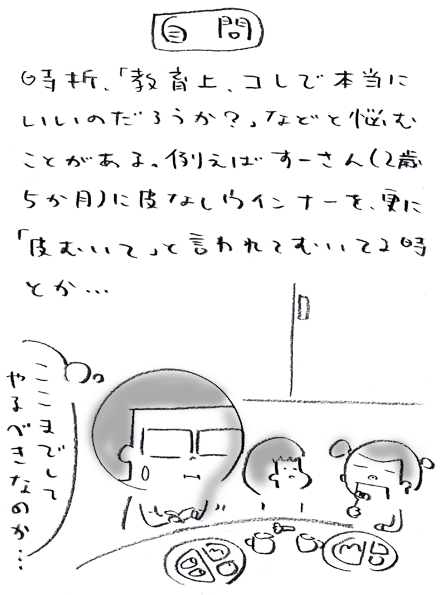 自問
時折、「教育上、コレで本当に
いいのだろうか?」などと悩む
ことがある。例えばすーさん(2歳
5か月)に皮なしウインナーを、更に
「皮むいて」と言われてむいてる時
とか…
ここまでして
やるべきなのか…